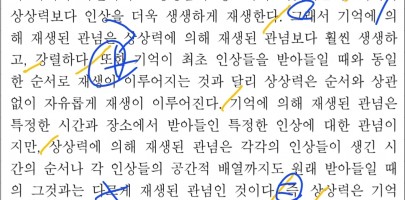 상상력보다 인상을 더욱 생생하게 재생한다. 그래서 기억에 의
해 재생된 관념은 상상력에 의해 재생된 관념보다 훨씬 생생하
고, 강렬하다. 또한 기억이 최초 인상들을 받아들일 때와 동일
한 순서로 재생이 이루어지는 것과 달리 상상력은 순서와 상관
없이 자유롭게 재생이 이루어진다. 기억에 의해 재생된 관념은
특정한 시간과 장소에서 받아들인 특정한 인상에 대한 관념이
지만, 상상력에 의해 재생된 관념은 각각의 인상들이 생긴 시
간의 순서나 각 인상들의 공간적 배열까지도 원래 받아들일 때
의 그것과는 다르게 재생된 관념인 것이다. 즉, 상상력은 기억